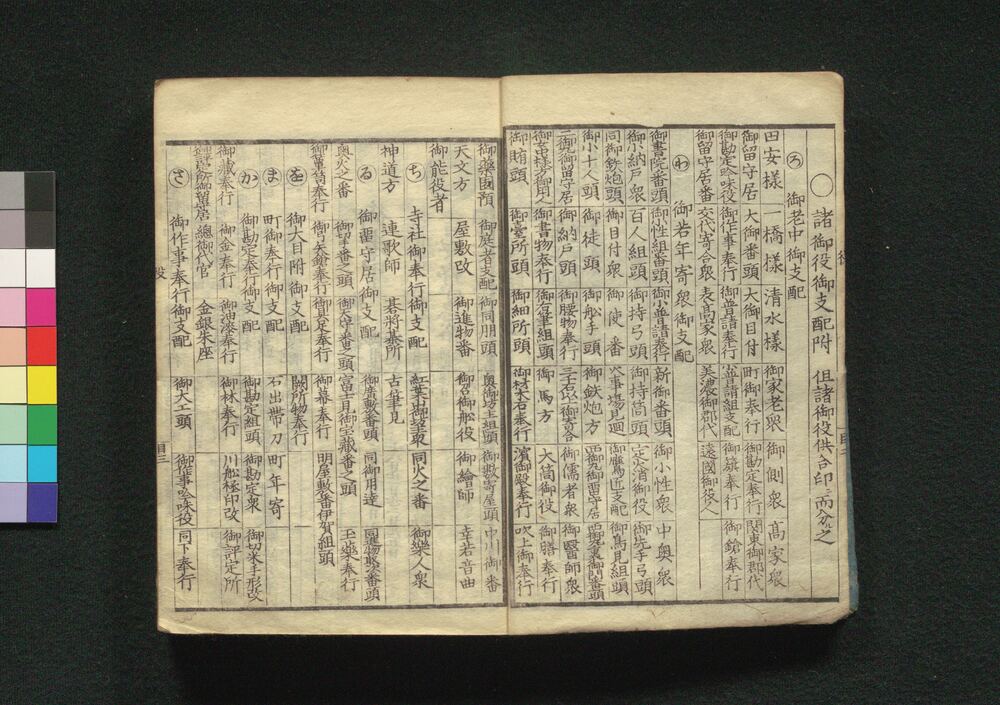 ○ 諸御役御支配附 但諸御役供合印ニ而分ル之
ろ 御老中御支配
田安様 一橋様 清水様 御家老衆 御側衆 高家衆
御留守居 大御番頭 大御目付 町御奉行 御勘定奉行 関東御郡代
御勘定吟味役 御作事奉行 御普請奉行 小普請組支配 御旗奉行 御鎗奉行
御留守居番 交代寄合衆 表高家衆 美濃御郡代 遠國御役人
わ 御若年寄衆御支配
御書院番頭 御小性組番頭 御小普請奉行 新御番頭 御小性衆 中奥衆
御小納戸衆 百人組頭 御持弓頭 御持筒頭 定火消御役 御先手弓頭
同御鉄炮頭 御目付衆 御使番 火事場見廻 御鷹匠支配 御鳥見組頭
御小十人頭 御徒頭 御舩手頭 御鉄炮方 西丸御留守居 西丸裏御門番頭
二丸御留守居 御納戸頭 御腰物奉行 三千石以上御寄合 御儒者衆 御醫師衆
御書物奉行 御右筆組頭 御馬方 大筒御役 御膳奉行
御賄頭 御臺所頭 御細所頭 御材木石奉行 濱御殿奉行 吹上御奉行
御薬園預 御庭者支配 御同朋頭 奥御坊主組頭 御数寄屋頭 中川御番
天文方 屋敷改 御進物番 御召御舩役 御繪師 幸若音曲
御能役者
ち 寺社御奉行御支配 紅葉山御坊主衆 同火之番 御樂人衆
神道方 連歌師 碁将棊所 古筆見
る 御留守居御支配 御廣敷番頭 同御用達 同進物取次番頭
奥火之番 御切手番之頭 御天守番之頭 富士見御宝蔵番之頭 玉薬奉行
御弓矢鎗奉行 御具足奉行 御幕奉行 明屋敷番伊賀組頭
を 御大目附御支配 闕所物奉行
ま 町御奉行御支配 石出帶刀 町年寄
か 御勘定奉行御支配 御勘定組頭 御勘定衆 御切米手形改
御藏奉行 御金奉行 御油漆奉行 御林奉行 川舩極印改 御評定所
總御代官 金銀朱座
さ 御作事奉行御支配 御大工頭 御作事吟味役 同下奉行